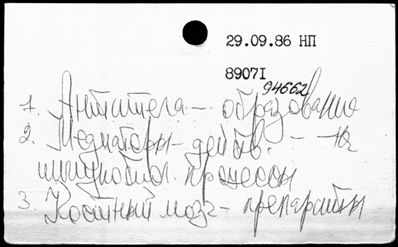 29.09.86 НП
8907I
94662
1. Антитела - образование
2. Медиаторы - действ. - на
иммунобиол. процессы
3. Костный мозг - препараты